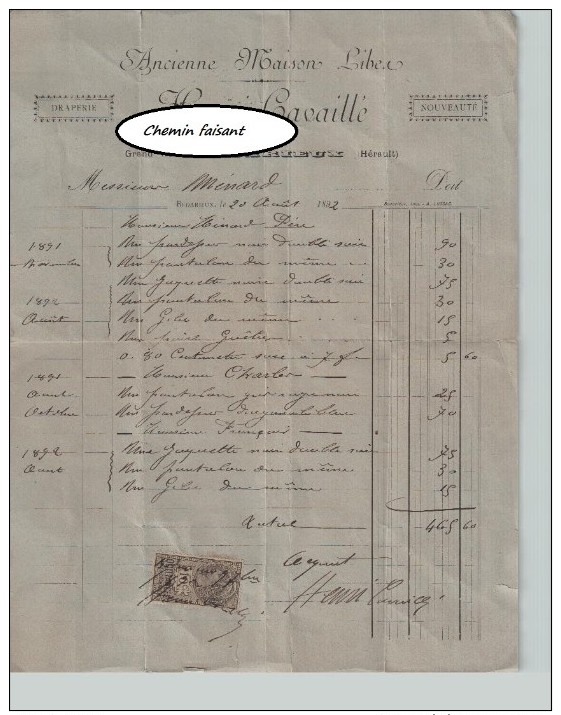 Ancienne Maison Libes
DRAPERIE
Henri Cavaillé
NOUVEAUTÉ
Chemin faisant
Grand
(Hérault)
Messieurs Ménard Doit
BEDARIEUX, le 20 Août 1892
Monsieur Ménard Père
1891 Un pardessus noir double soie 90
Novembre Un pantalon du même 30
Une Jaquette noire double soie 75
1892 Un pantalon du même 30
Août Un Gilet du même 15
Un 5
0.80 Centimètre 5 60
1891 — Monsieur Charles —
Août Un pantalon 25
Octobre Un pardessus 70
— Monsieur François —
1892 Une Jaquette noire double soie 75
Août Un pantalon du même 30
Un Gilet du même 15
Total 465 60
Acquit
Henri Cavaillé